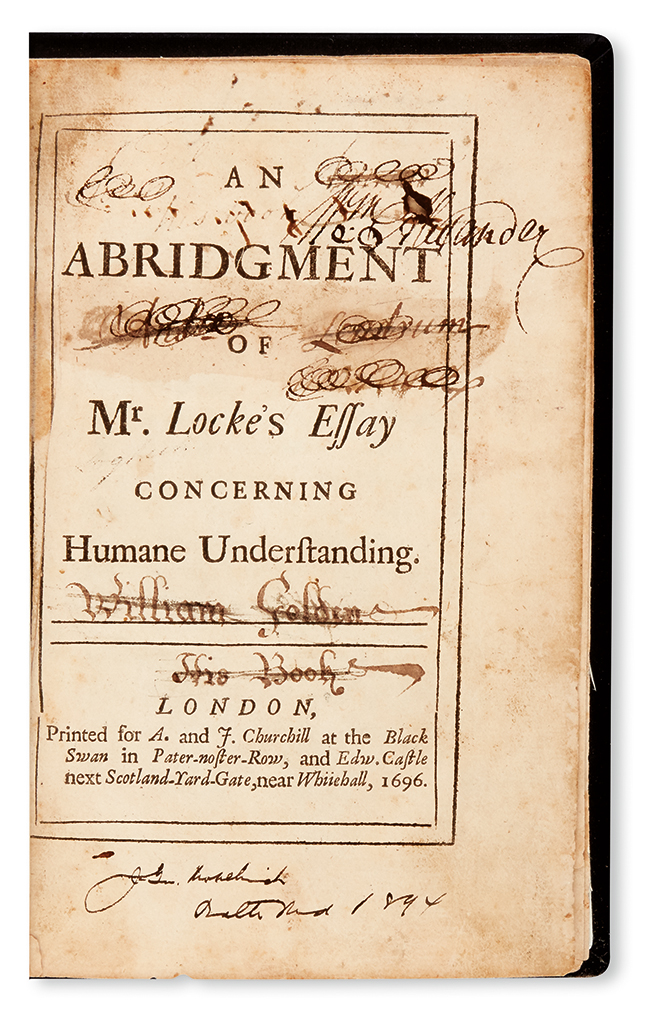 AN
ABRIDGMENT
OF
Mʳ. Locke's Eſſay
CONCERNING
Humane Underſtanding.
William Goldin
His Book
LONDON,
Printed for A. and J. Churchill at the Black
Swan in Pater-noſter-Row, and Edw. Caſtle
next Scotland-Yard-Gate, near Whitehall, 1696.
1894